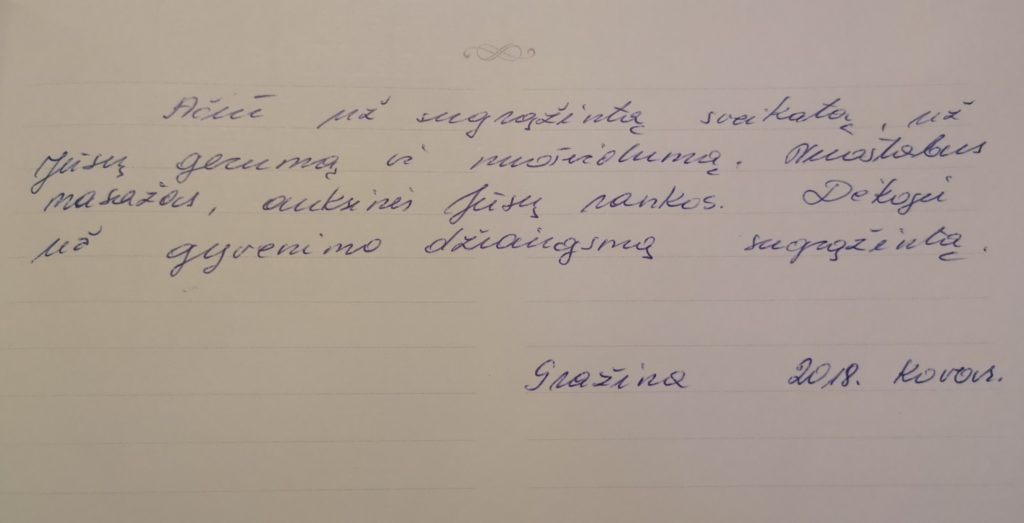 Ačiū už sugrąžintą sveikatą, už
Jūsų gerumą ir nuoširdumą. Nuostabus
masažas, auksinės Jūsų rankos. Dėkoju
už gyvenimo džiaugsmą sugrąžintą.
Gražina 2018. Kovas.